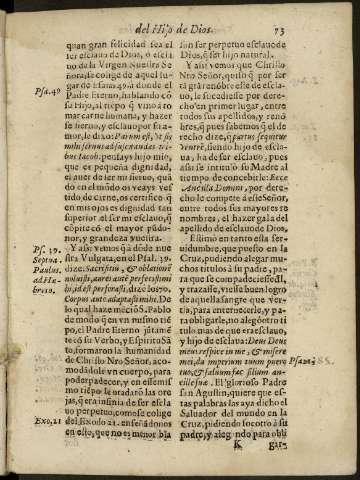 del Hijo de Dios.
73
quan gran felicidad sea el
ser esclauo de Dios, o escla
uo de la Virgen Nuestra Se
ñora, se colige de aquel lu-
gar de Esaias 49. a donde el
Padre Eterno, hablando cõ
su Hijo, al tiẽpo q̃ vino a to
mar carne humana, y hazer
se sieruo, y esclauo por su a-
mor, le dize: Parum est, vt sis
mihi seruus ad suscitandas tri-
bus Iacob. pensays hijo mio,
que es pequeña dignidad,
el auer de ser mi sieruo, quã
do en el mũdo os veays ves
tido de carne, os certifico q̃
en mis ojos es dignidad tan
superior el ser mi esclauo, q̃
cõpite cõ el mayor pũdo-
nor, y grandeza vuestra.
Y assi vemos q̃ a dõde nue
stra Vulgata, en el Psal. 39.
dize. Sacrificiũ, & oblationẽ
noluisti, aures autẽ perfecisti mi
hi, id est perforasti, dize los 70.
Corpus autẽ adaptasti mihi. De
lo qual haze mẽciõ S. Pablo
de modo que en vn mismo tiẽ
po, el Padre Eterno jũtamẽ
te cõ su Verbo, y Espiritu Sã
to, formaron la humanidad
de Christo Nro Señor, aco-
modãdole vn cuerpo, para
poder padecer, y en esse mis
mo tiẽpo le oradarõ las oro
jas, q̃ era insinia de ser escla
uo perpetuo, como se colige
del Exodo 21. enseñãdonos
en esto, que no es menor bla
Psa. 49
Ps. 39.
Septua.
Paulus.
ad He-
bre. 10.
Exo. 21
son ser perpetuo esclauo de
Dios, q̃ ser hijo natural.
Y assi vemos que Christo
Nro Señor, quiso q̃ por ser
tã grã renõbre este de escla
uo, le sucediesse por dere-
cho en primer lugar, entre
todos sus apellidos, y renõ
bres, q̃ pues sabemos q̃ el de
recho dize, q̃ partus sequitur
Ventrẽ, siendo hijo de escla-
ua, ha de ser esclauo, pues
assi se intitulo su Madre al
tiempo de concebirle: Ecce
Ancilla Domini, por dere-
cho le compete a este Señor,
entre todos sus mayores re
nombres, el hazer gala del
apellido de esclauo de Dios.
Estimo en tanto esta ser-
uidumbre, que puesto en la
Cruz, pudiendo alegar mu-
chos titulos a su padre, pa-
ra que se compadeciesse dl,
y trazasse, visto el buen logro
de aquella sangre que ver-
tia, para enternecerle, y pa-
ra obligarle, no alegó otro ti
tulo mas de que era esclauo,
y hijo de esclaua: Deus Deus
meus respice in me, & misere
mei, da imperium tuum puero
tuo, & saluum fac filium an-
cillæ tuæ. El glorioso Padre
san Agustin, quiere que es-
tas palabras las aya dicho el
Saluador del mundo en la
Cruz, pidiendo socorro a su
padre, y alegando para obli
85.
K